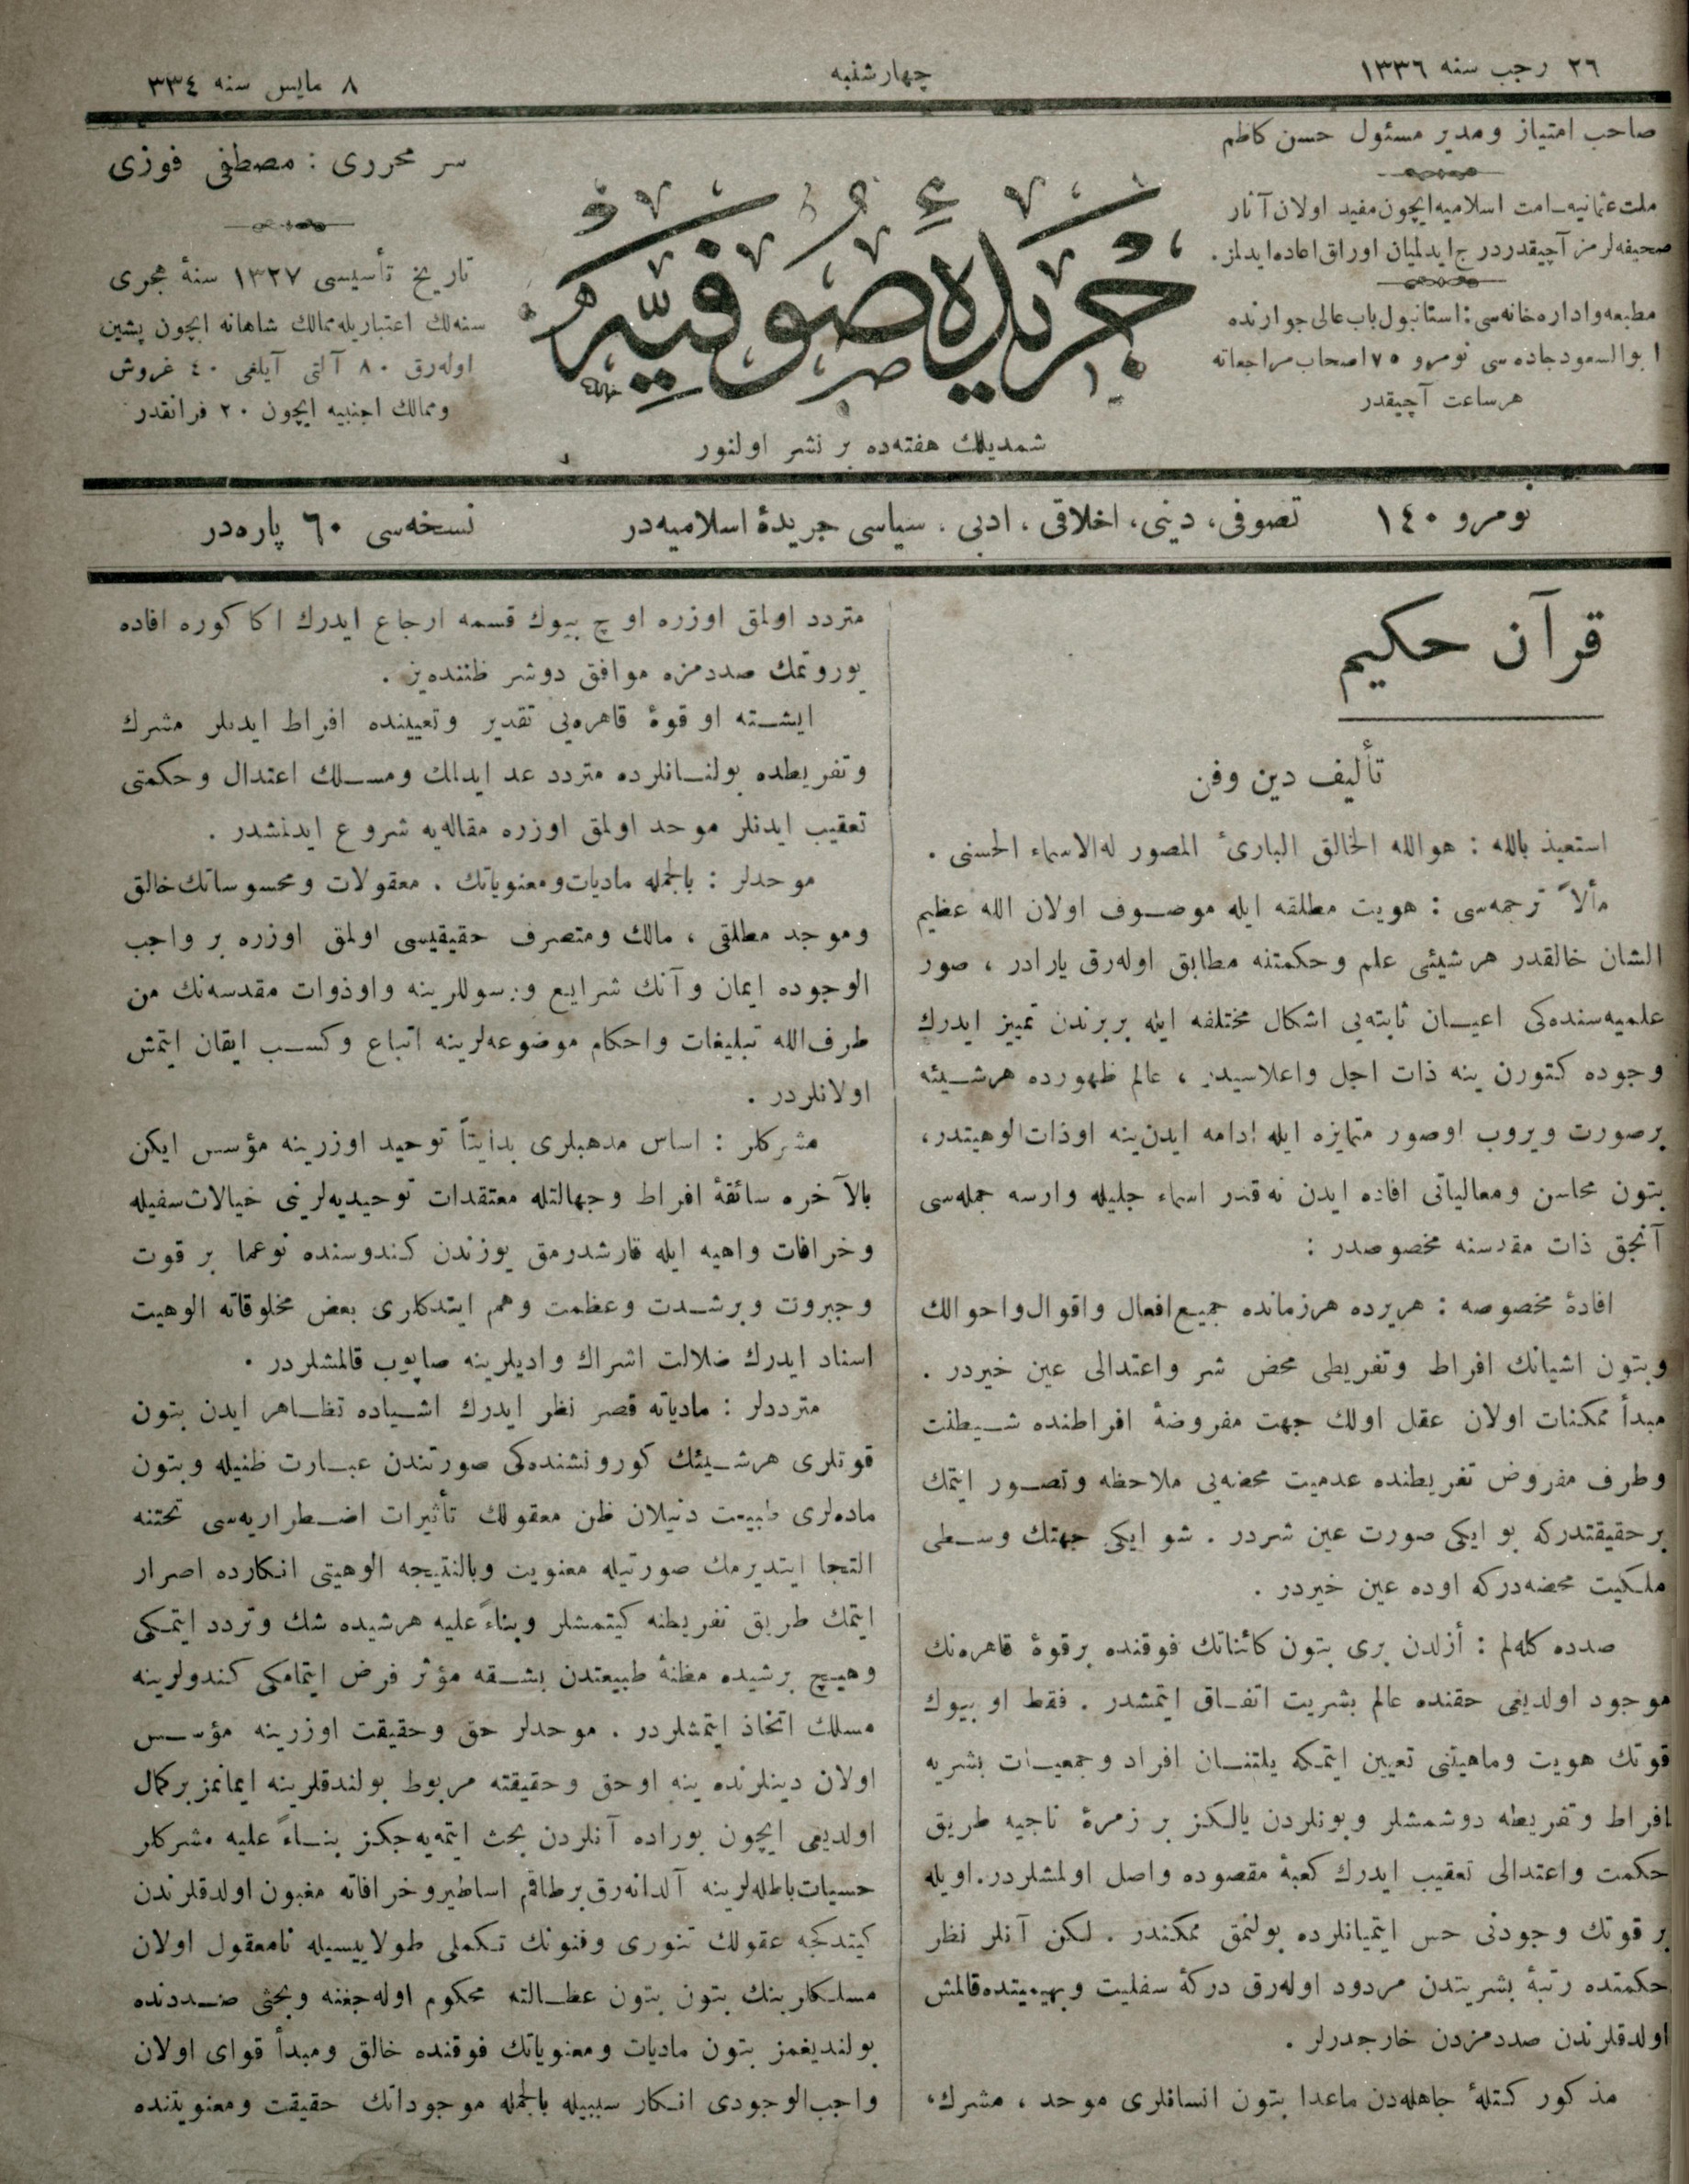 ٢٦ رجب سنه ١٣٣٦
چهارشنبه
٨ مايس سنه ٣٣٤
صاحب امتياز ومدير مسئول حسن كاظم
ملت عثمانيه ـ امت اسلاميه ايچون مفيد اولان آثار
صحيفه لرمز آچيقدر درج ايدلميان اوراق اعاده ايدلمز .
مطبعه واداره خانه سی : استانبول باب عالی جوارنده
ابوالسعود جاده سی نومرو ٧٥ اصحاب مراجعاته
هر ساعت آچيقدر
جريدۀ صوفيه
شمديلك هفته ده بر نشر اولنور
سر محرری : مصطفی فوزی
تاريخ تأسيسی ١٣٢٧ سنۀ هجری
سنه لك اعتباريله ممالك شاهانه ايچون پشين
اوله رق ٨٠ آلتی آيلغی ٤٠ غروش
وممالك اجنبيه ايچون ٢٠ فرانقدر
نومرو ١٤٠
تصوفی، دينی، اخلاقی ، ادبی . سياسی جريدۀ اسلاميه در
نسخه سی ٦٠ پاره در
قرآن حكيم
تأليف دين وفن
استعيذ بالله : هوالله الخالق البارئ المصور له الاسماء الحسنی .
مألاً ترجمه سی : هويت مطلقه ايله موصوف اولان الله عظيم
الشان خالقدر هر شيئی علم وحكمتنه مطابق اوله رق يارادر ، صور
علميه سنده كی اعيان ثابته يی اشكال مختلفه ايله بربرندن تمييز ايدرك
وجوده كتورن ينه ذات اجل واعلاسيدر ، عالم ظهورده هرشيئه
برصورت ويروب اوصور متمايزه ايله ادامه ايدن ينه اوذات الوهيتدر،
بتون محاسن ومعالياتی افاده ايدن نه قدر اسماء جليله وارسه جمله سی
آنجق ذات مقدسنه مخصوصدر :
افادۀ مخصوصه : هر يرده هر زمانده جميع افعال واقوال واحوالك
وبتون اشيانك افراط وتفريطی محض شر واعتدالی عين خيردر .
مبدأ ممكنات اولان عقل اولك جهت مفروضۀ افراطنده شيطنت
وطرف مفروض تفريطنده عدميت محضه يی ملاحظه وتصور ايتمك
برحقيقتدركه بو ايكی صورت عين شردر . شو ايكی جهتك وسطی
ملكيت محضه دركه اوده عين خيردر .
صدده كله لم : أزلدن بری بتون كائناتك فوقنده برقوۀ قاهره نك
موجود اولديغی حقنده عالم بشريت اتفاق ايتمشدر . فقط او بيوك
قوتك هويت وماهيتنی تعيين ايتمكه يلتنان افراد وجمعيات بشريه
افراط وتفريطه دوشمشلر وبونلردن يالكز بر زمرۀ ناجيه طريق
حكمت واعتدالی تعقيب ايدرك كعبۀ مقصوده واصل اولمشلردر. اويله
بر قوتك وجودنی حس ايتميانلرده بولنمق ممكندر . لكن آنلر نظر
حكمتده رتبۀ بشريتدن مردود اوله رق دركۀ سفليت وبهيميتده قالمش
اولدقلرندن صددمزدن خارجدرلر .
مذكور كتلۀ جاهله دن ماعدا بتون انسانلری موحد ، مشرك،
متردد اولمق اوزره اوچ بيوك قسمه ارجاع ايدرك اكا كوره افاده
يوروتمك صددمزه موافق دوشر ظننده يز .
ايشته او قوۀ قاهره يی تقدير وتعيينده افراط ايدنلر مشرك
وتفريطده بولنانلرده متردد عد ايدلمك ومسلك اعتدال وحكمتی
تعقيب ايدنلر موحد اولمق اوزره مقاله يه شروع ايدلمشدر .
موحدلر : بالجمله ماديات ومعنوياتك . معقولات ومحسوساتك خالق
وموجد مطلقی ، مالك ومتصرف حقيقيسی اولمق اوزره بر واجب
الوجوده ايمان وآنك شرايع ورسوللرينه واوذوات مقدسه نك من
طرف الله تبليغات واحكام موضوعه لرينه اتباع وكسب ايقان ايتمش
اولانلردر .
مشركلر : اساس مذهبلری بدايتاً توحيد اوزرينه مؤسس ايكن
بالآخره سائقۀ افراط وجهالتله معتقدات توحيديه لرينی خيالات سفيله
وخرافات واهيه ايله قارشدرمق يوزندن كندوسنده نوعما بر قوت
وجبروت وبرشدت وعظمت وهم ايتدكلری بعض مخلوقاته الوهيت
اسناد ايدرك ضلالت اشراك واديلرينه صاپوب قالمشلردر .
مترددلر : مادياته قصر نظر ايدرك اشياده تظاهر ايدن بتون
قوتلری هرشيئك كورونشنده كی صورتندن عبارت ظنيله وبتون
ماده لری طبيعت دنيلان ظن معقولك تأثيرات اضطراريه سی تحتنه
التجا ايتديرمك صورتيله معنويت وبالنتيجه الوهيتی انكارده اصرار
ايتمك طريق تفريطنه كيتمشلر وبناءً عليه هرشيده شك وتردد ايتمكی
وهيچ برشيده مظنۀ طبيعتدن بشقه مؤثر فرض ايتمامكی كندولرينه
مسلك اتخاذ ايتمشلردر . موحدلر حق وحقيقت اوزرينه مؤسس
اولان دينلرنده ينه اوحق وحقيقته مربوط بولندقلرينه ايمانمز بركمال
اولديغی ايچون بوراده آنلردن بحث ايتمه يه جكز بناءً عليه مشركلر
حسيات باطله لرينه آلدانه رق برطاقم اساطير وخرافاته مغبون اولدقلرندن
كيتدكجه عقولك تنوری وفنونك تكملی طولاييسيله نامعقول اولان
مسلكلرينك بتون بتون عطالته محكوم اوله جغنه وبحثی صددنده
بولنديغمز بتون ماديات ومعنوياتك فوقنده خالق ومبدأ قوای اولان
واجب الوجودی انكار سببيله بالجمله موجوداتك حقيقت ومعنويتنده